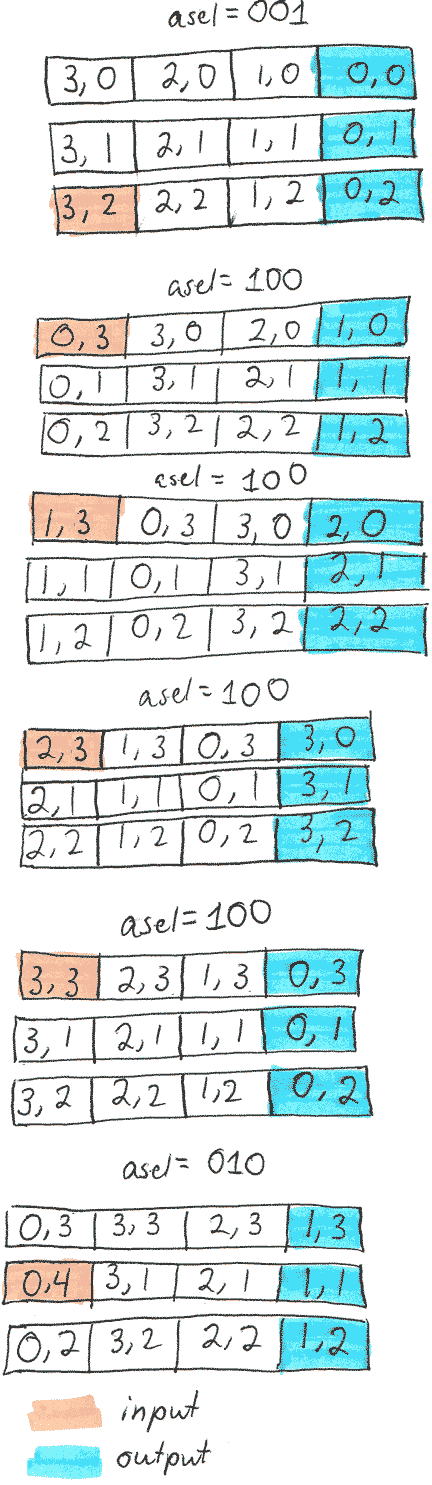 asel = 001
3, 0 2, 0 1, 0 0, 0
3, 1 2, 1 1, 1 0, 1
3, 2 2, 2 1, 2 0, 2
asel = 100
0, 3 3, 0 2, 0 1, 0
0, 1 3, 1 2, 1 1, 1
0, 2 3, 2 2, 2 1, 2
asel = 100
1, 3 0, 3 3, 0 2, 0
1, 1 0, 1 3, 1 2, 1
1, 2 0, 2 3, 2 2, 2
asel = 100
2, 3 1, 3 0, 3 3, 0
2, 1 1, 1 0, 1 3, 1
2, 2 1, 2 0, 2 3, 2
asel = 100
3, 3 2, 3 1, 3 0, 3
3, 1 2, 1 1, 1 0, 1
3, 2 2, 2 1, 2 0, 2
asel = 010
0, 3 3, 3 2, 3 1, 3
0, 4 3, 1 2, 1 1, 1
0, 2 3, 2 2, 2 1, 2
input
output